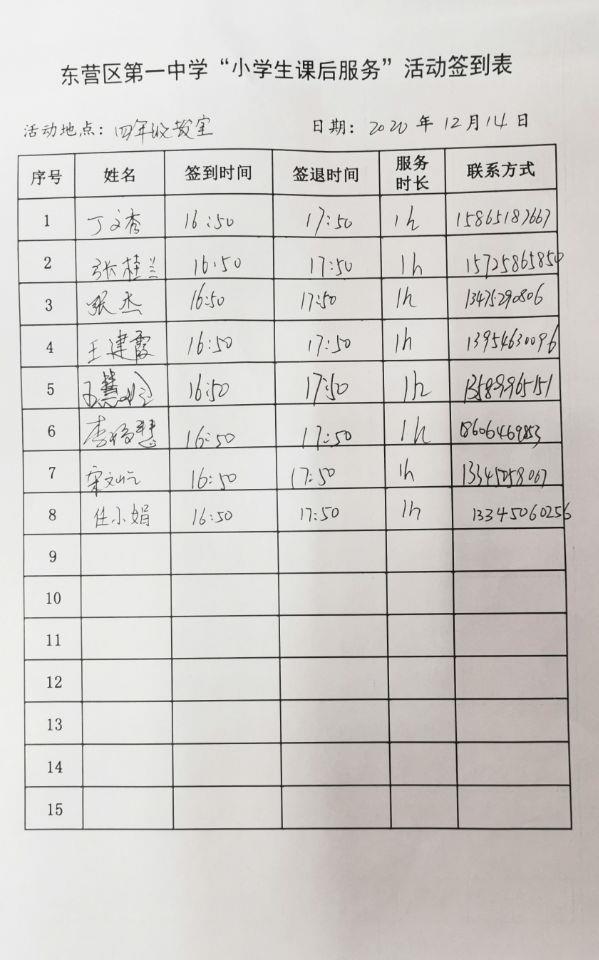 东营区第一中学“小学生课后服务”活动签到表
活动地点：四年级教室 日期：2020年12月14日
序号 姓名 签到时间 签退时间 服务时长 联系方式
1 丁文秀 16:50 17:50 1h
2 张桂兰 16:50 17:50 1h 15725865850
3 张杰 16:50 17:50 1h 13475290806
4 王建霞 16:50 17:50 1h 13954630096
5 16:50 17:50 1h 13589965151
6 16:50 17:50 1h
7 16:50 17:50 1h 13345058067
8 任小娟 16:50 17:50 1h 13345060256
9
10
11
12
13
14
15